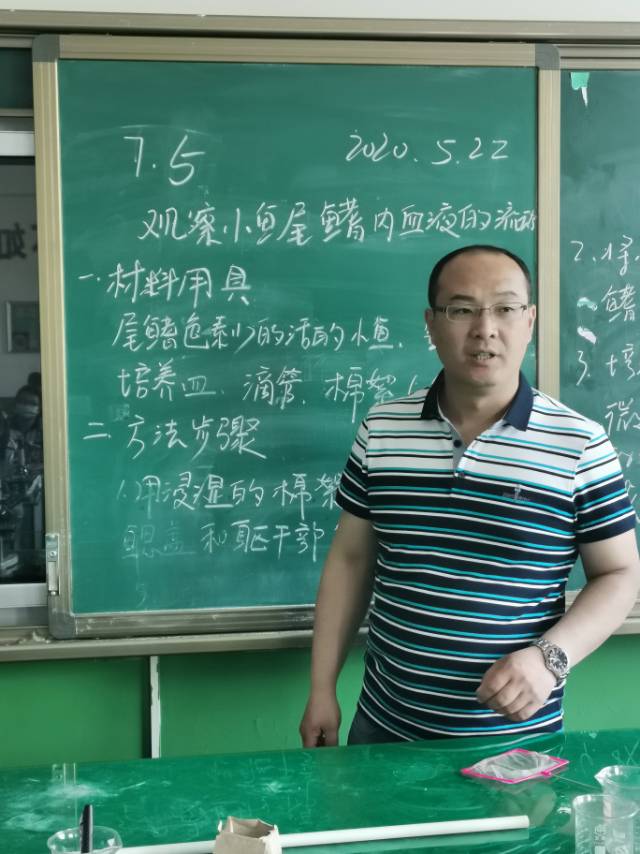 7.5
2020.5.22
观察小鱼尾鳍内血液的流
一.材料用具
尾鳍色素少的活的小鱼、
培养皿、滴管、棉絮
二.方法步骤
1.用浸湿的棉絮
鳃盖和躯干部
2.将小
鳍
3.培
微